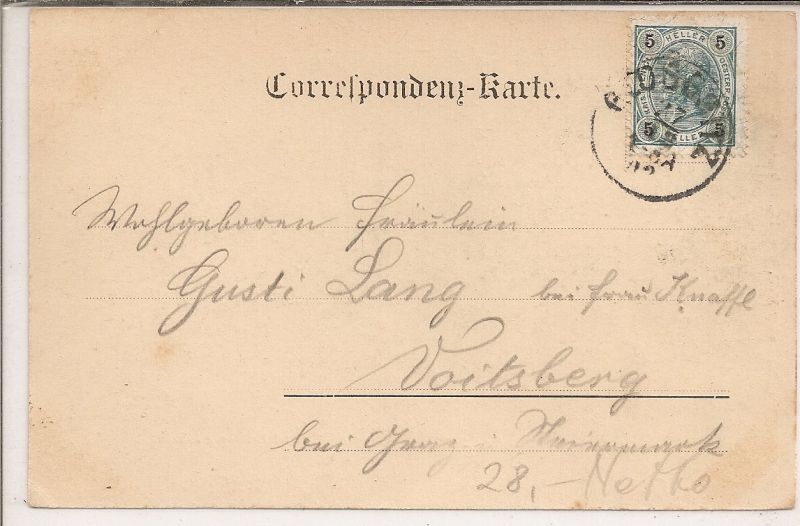 5 HELLER 5
Correspondenz-Karte.
5 HELLER 5
Wohlgeboren Fräulein
Gusti Lang bei Frau Knaffl
Voitsberg
bei Graz in Steiermark
28,- Netto